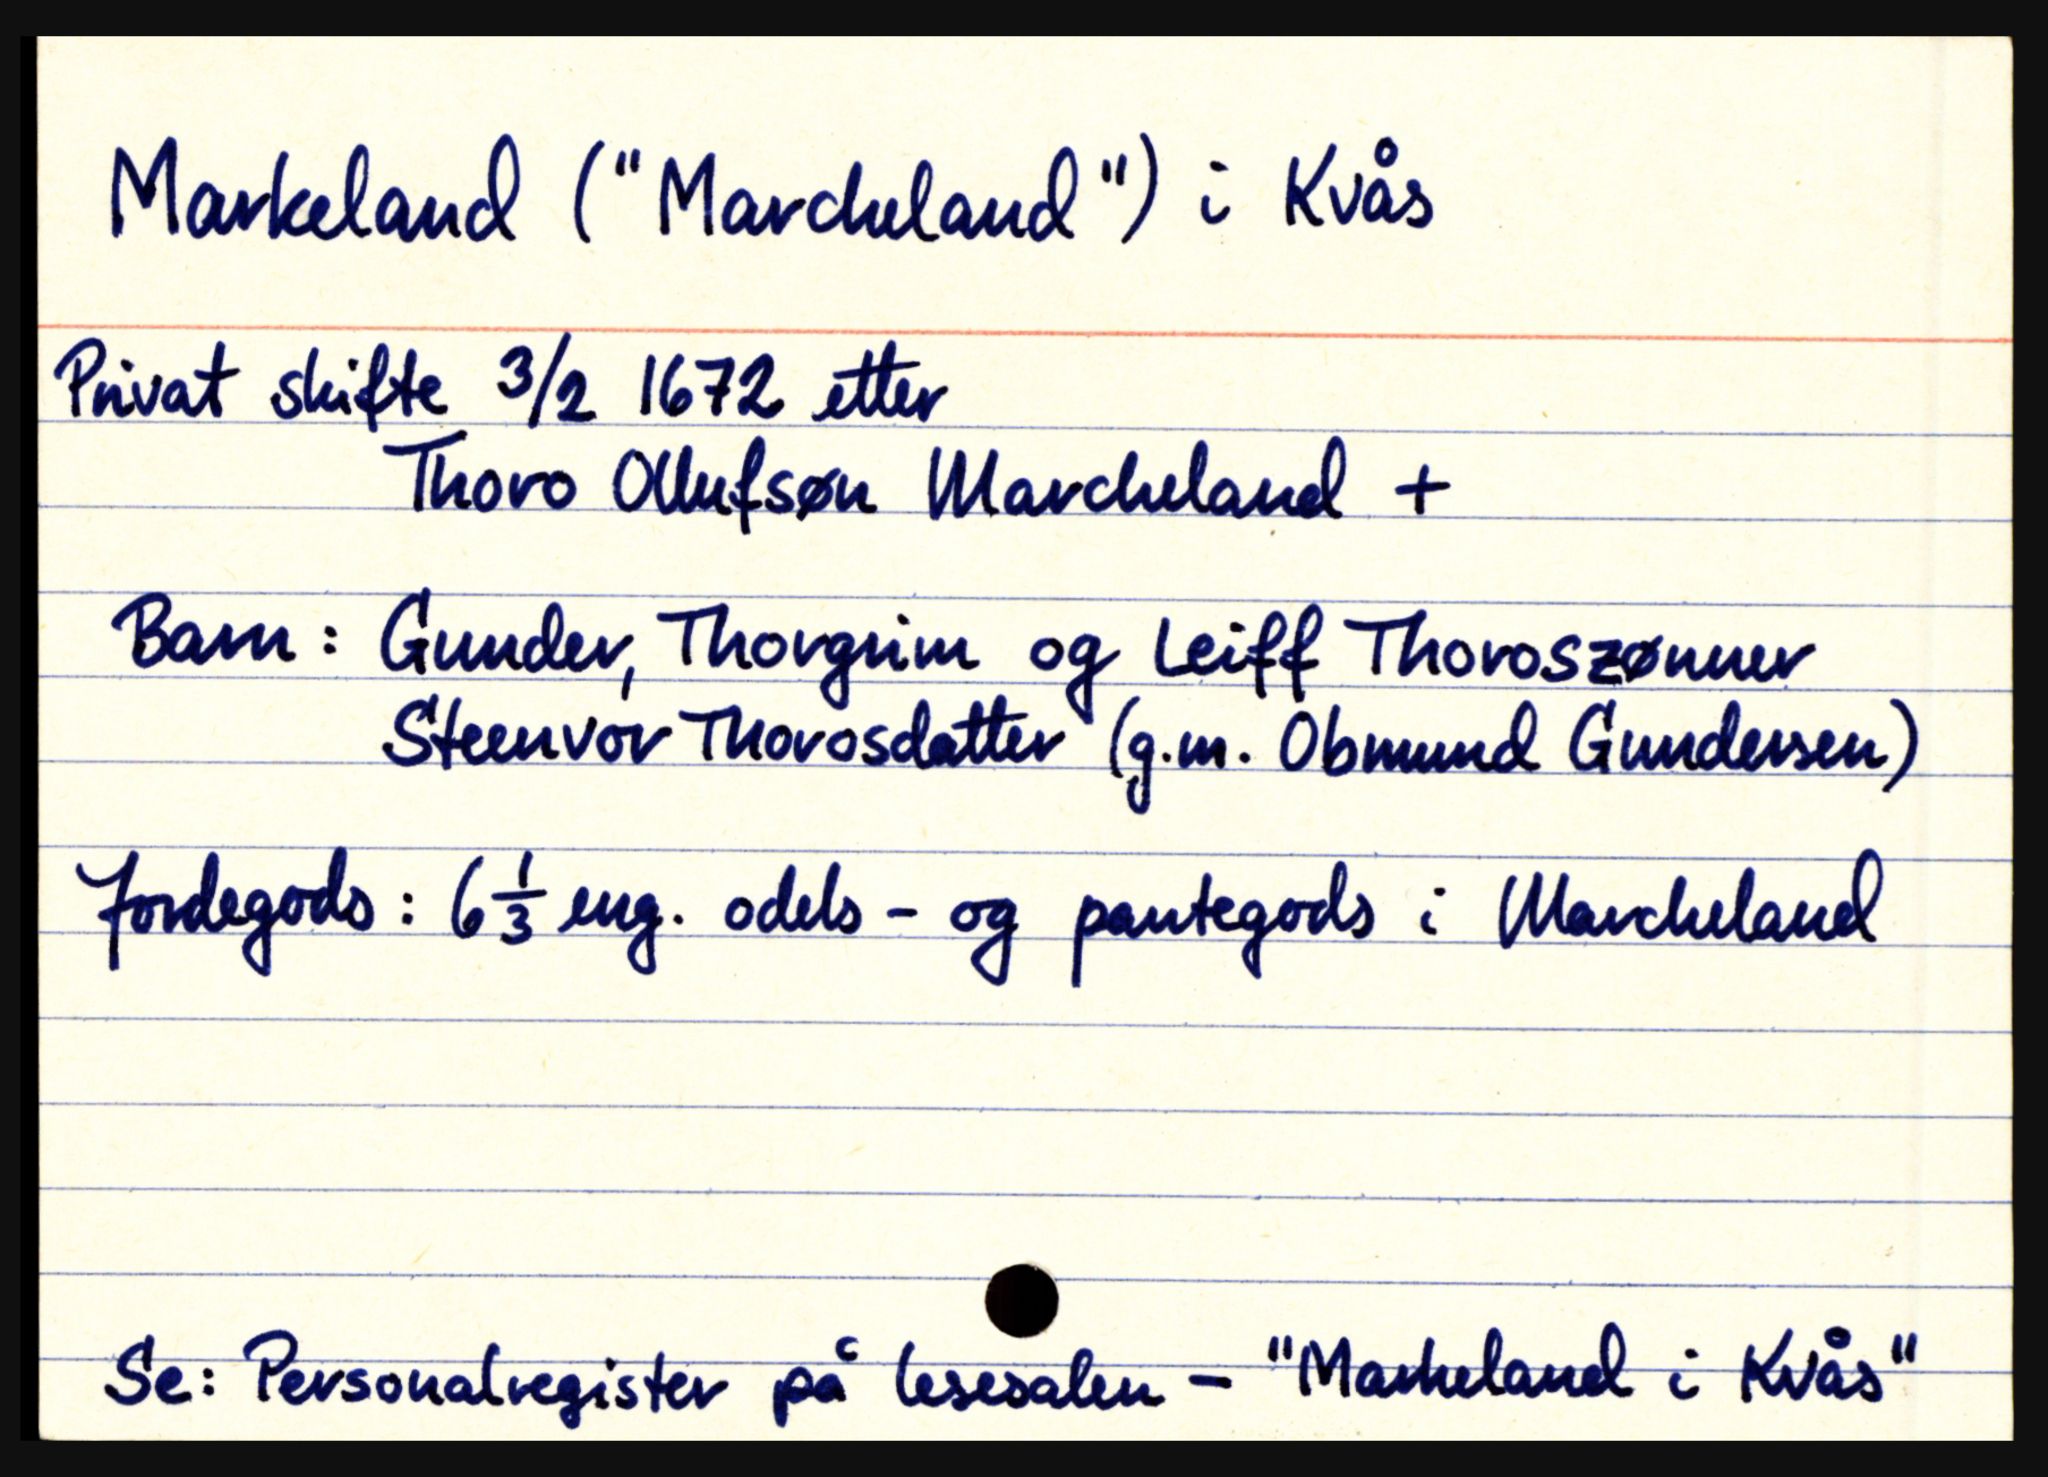 Markeland ("Marcheland") i Kvås
Privat skifte 3/2 1672 etter
Thoro Ollufsøn Marcheland +
Barn: Gunder, Thorgrim og Leiff Thoroszønner
Steenvor Thorosdatter (g.m. Obmund Gundersen)
Jordegods: 6 1/3 eng. odels - og pantegods i Marcheland
Se: Personalregister på lesesalen - "Markeland i Kvås"